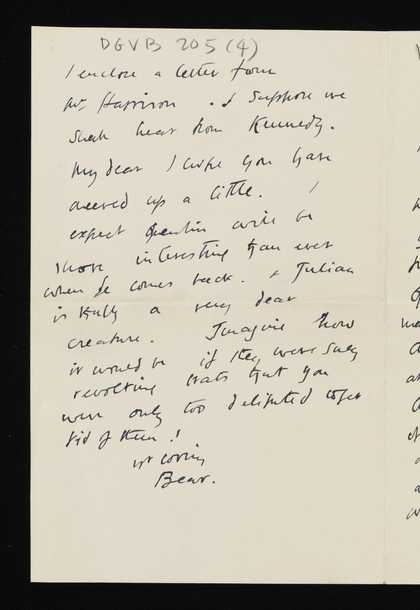 DGVB 205 (4)
I enclose a letter from
Mr Harrison. & I suppose we
shall hear from Kennedy.
My dear I hope you have
cheered up a little. I
expect Quentin will be
more interesting than ever
when he comes back. & Julian
is really a very dear
creature. Imagine how
it would be if they were such
revolting brats that you
were only too delighted to get
rid of them!
yr loving
Bear.